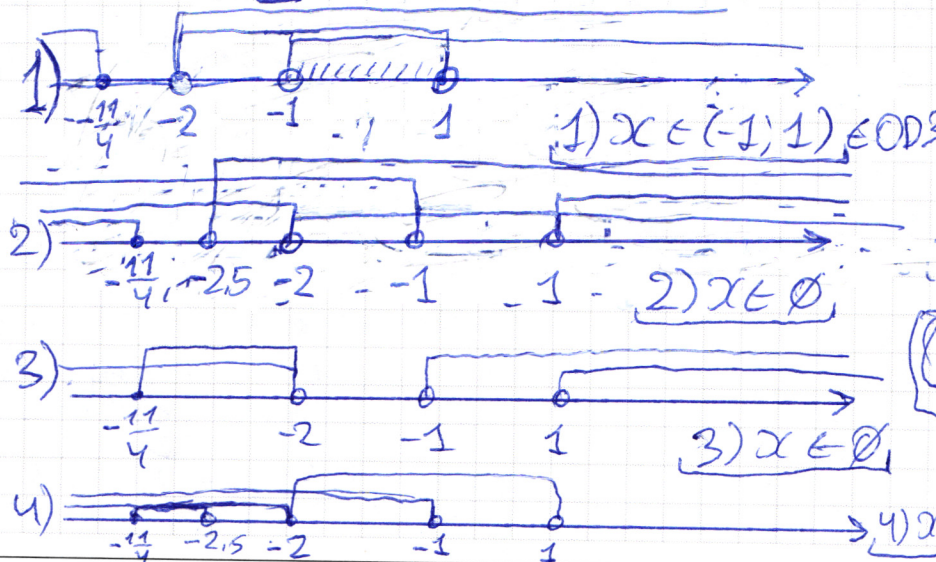 1)
-11/4 -2 -1 1
1) x ∈ (-1; 1) ∈ ОДЗ
2)
-11/4 -2,5 -2 -1 1
2) x ∈ ∅
3)
-11/4 -2 -1 1
3) x ∈ ∅
4)
-11/4 -2,5 -2 -1 1
4) x